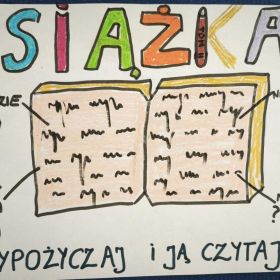 SIĄŻKA
TOM II
ZIE
YPOŻYCZAJ I JĄ CZYTAJ